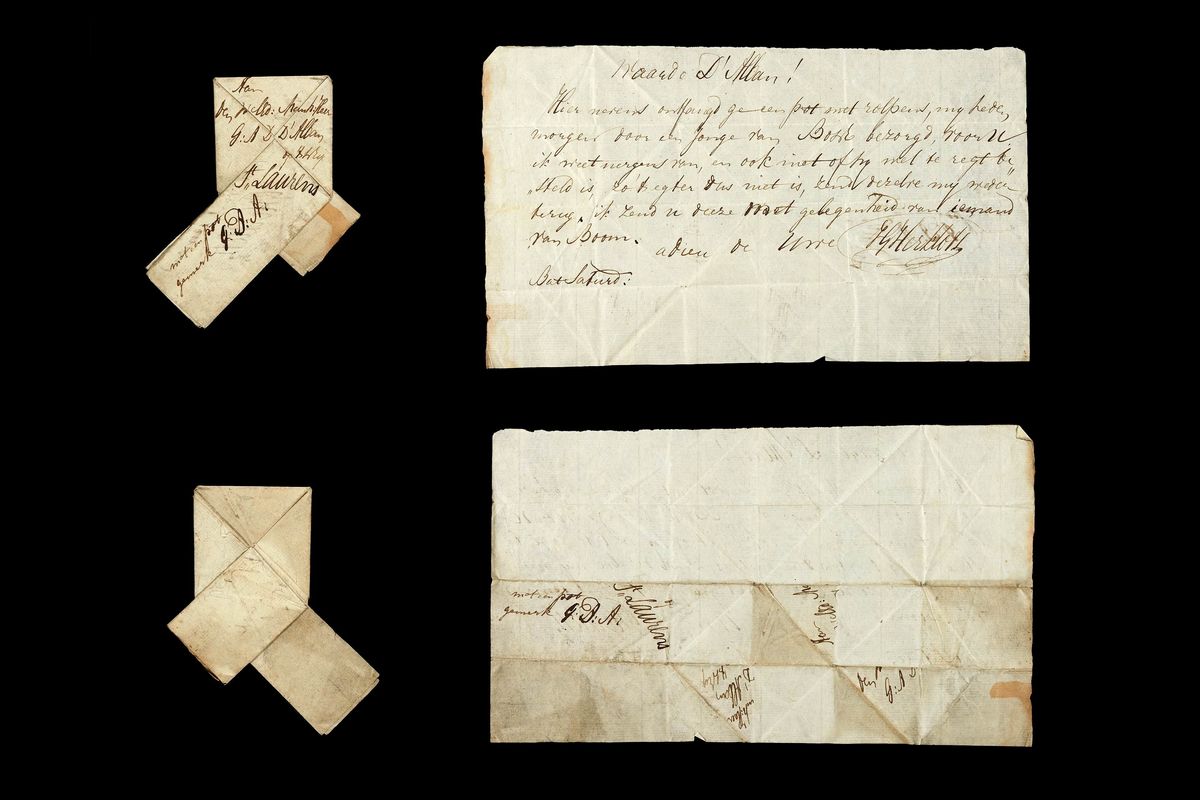 Aan
Den WelEd: 
G: A D D'Allan
St Laurens
met een pot
gemerk G: D: A:
Waarde D'Allan!
Hier nevens ontfangd ge een pot met rolpens, my heden
morgen door een Jonge van bezorgd, voor U
ik weet nergens van, en ook niet of hy wel te regt be
steld is, zo't egter dus niet is, zend dezelve my weder
terug. ik zend u deeze met gelegenheid van iemand
van Boom. adieu de Uwe
Saturd:
met een pot
gemerk G: D: A:
St Laurens
Aan
D'Allan
Den
G: A